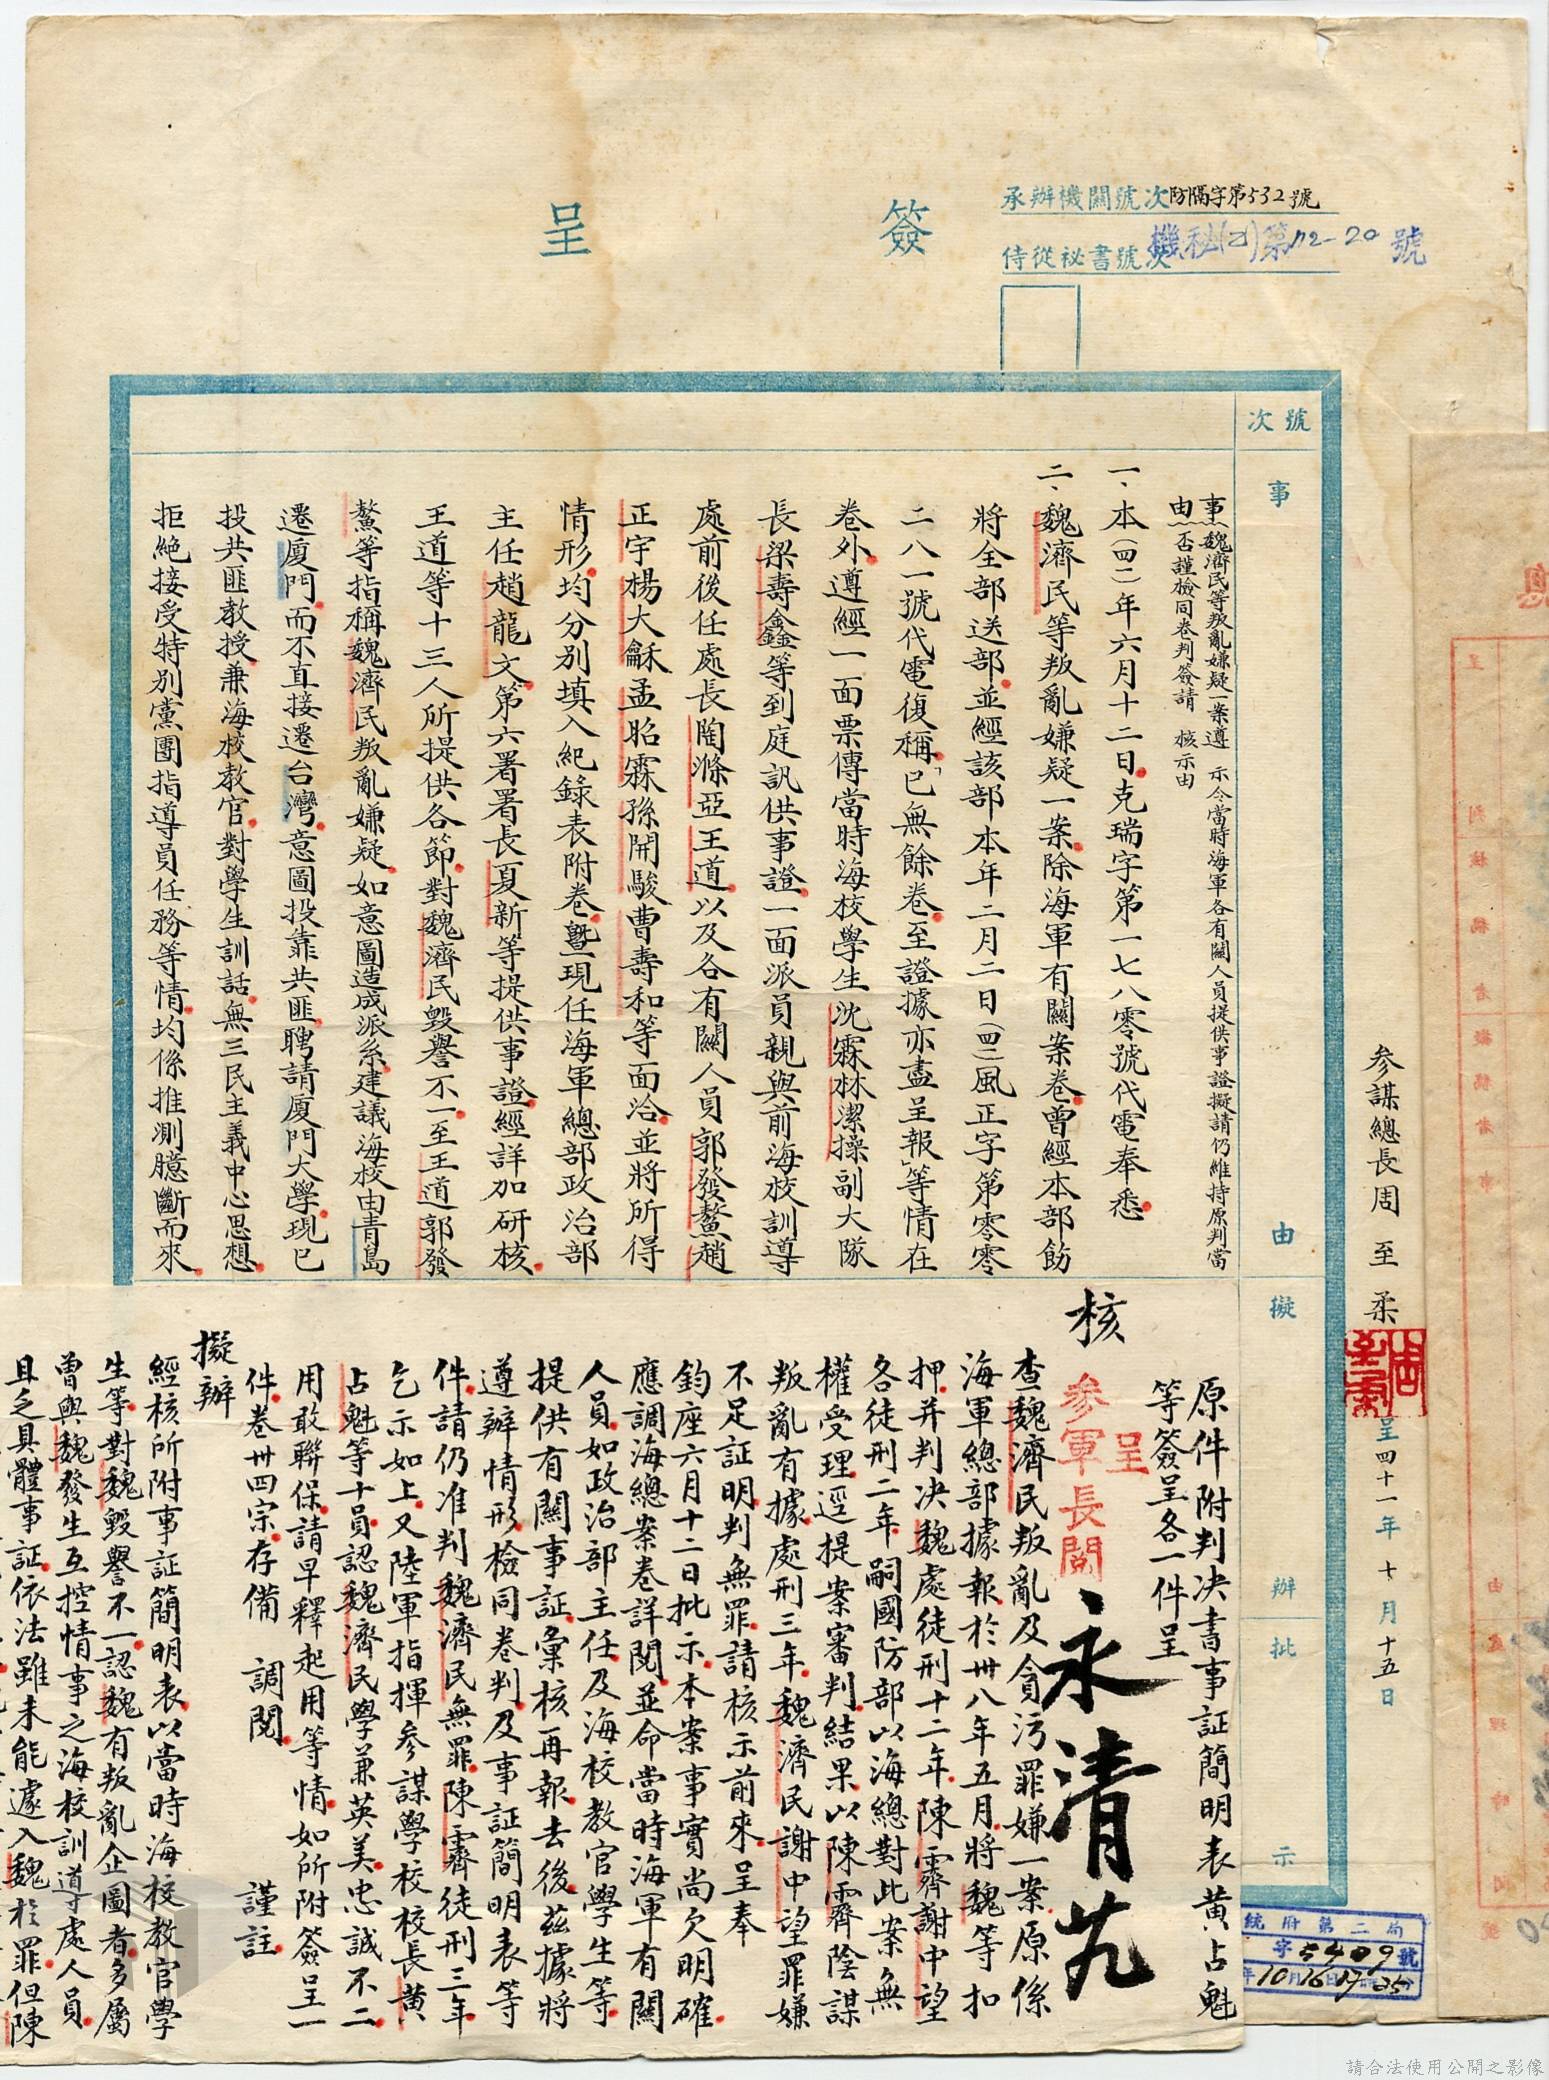 簽呈
承辦機關號次防隔字第532號
侍從祕書號次機秘(乙)第112-20號
號次
事由
擬辦
批示
參謀總長周至柔
呈四十一年十月十五日
事由 魏濟民等叛亂嫌疑一案遵 示令當時海軍各有關人員提供事證擬請仍維持原判當
否謹檢同卷判簽請 核示由
一、本(四一)年六月十二日克瑞字第一七八零號代電奉悉
二、魏濟民等叛亂嫌疑一案除海軍有關案卷曾經本部飭
將全部送部並經該部本年二月二日(四一)風正字第零零
二八一號代電復稱「已無餘卷至證據亦盡呈報」等情在
卷外遵經一面票傳當時海校學生沈霖林潔操副大隊
長梁壽鑫等到庭訊供事證一面派員親與前海校訓導
處前後任處長陶滌亞王道以及各有關人員郭發鰲趙
正宇楊大龢孟昭霖孫開駿曹壽和等面洽並將所得
情形均分別填入紀錄表附卷暨現任海軍總部政治部
主任趙龍文第六署署長夏新等提供事證經詳加研核
王道等十三人所提供各節對魏濟民毀譽不一至王道郭發
鰲等指稱魏濟民叛亂嫌疑如意圖造成派系建議海校由青島
遷廈門而不直接遷台灣意圖投靠共匪聘請廈門大學現已
投共匪教授兼海校教官對學生訓話無三民主義中心思想
拒絕接受特別黨團指導員任務等情均係推測臆斷而來
原件附判決書事証簡明表黃占魁
等簽呈各一件呈
呈
參軍長閱
核
查魏濟民叛亂及貪污罪嫌一案原係
海軍總部據報於卅八年五月將魏等扣
押并判决魏處徒刑十二年陳霽謝中望
各徒刑二年嗣國防部以海總對此案無
權受理逕提案審判結果以陳霽陰謀
叛亂有據處刑三年魏濟民謝中望罪嫌
不足証明判無罪請核示前來呈奉
鈞座六月十二日批示本案事實尚欠明確
應調海總案卷詳閱並命當時海軍有關
人員如政治部主任及海校教官學生等
提供有關事証彙核再報去後茲據將
遵辦情形檢同卷判及事証簡明表等
件請仍准判魏濟民無罪陳霽徒刑三年
乞示如上又陸軍指揮參謀學校校長黃
占魁等十員認魏濟民學兼英美忠誠不二
用敢聯保請早釋起用等情如所附簽呈一
件卷卅四宗存備 調閱 謹註
擬辦
經核所附事証簡明表以當時海校教官學
生等對魏毀譽不一認魏有叛亂企圖者多屬
曾與魏發生互控情事之海校訓導處人員
且乏具體事証依法雖未能遽入魏於罪但陳
統府第二局
字5409號
年10月16日17時25分
請合法使用公開之影像